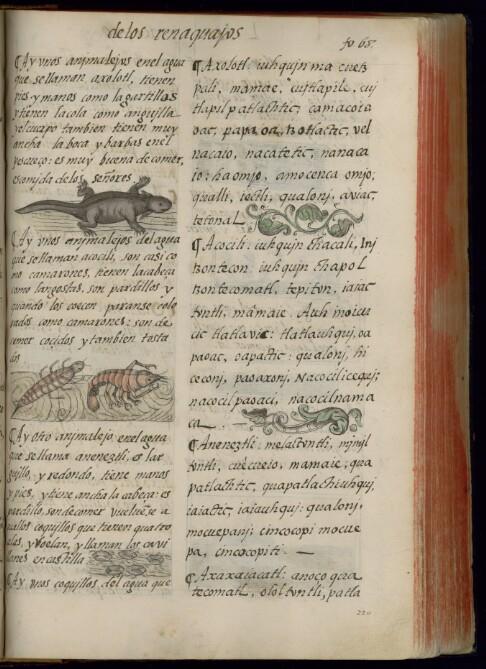 de los renaquajos
fo 65.
¶ Ay vnos anjmalejos en el agua
que se llaman axolotl, tienen
pies y manos como lagartillas
y tienen la cola como anguilla
y el cuerpo tambien tienen muy
ancha la boca y barbas en el
pescueço: es muy buena de comer,
es comida de los señores
¶ Ay vnos anjmalejos del agua
que se llaman acocili, son casi co
mo camarones, tienen la cabeça
como langostas, son pardillos y
quando los coecen paranse colo
rados como camarones: son de
comer cocidos y tambien tosta
dos
¶ Ay otro anjmalejo en el agua
que se llama aneneztli, es lar
guillo, y redondo, tiene manos
y pies, y tiene ancha la cabeça: es
pardillo, son de comer vueluese a
quellos coquillos que tienen quatro
alas, y voelan, y llaman los cavi
lanes en castilla
¶ Ay vnos coquillos del agua que
¶ Axolotl: iuhqujn ma cuetz
pali, mamae, cujtlapile, cuj
tlapilpatlachtic, camacoia
oac, tzotlactic, vel
nacaio, nacatetic, nanaca
io: haomjo, amocenca omjo:
qualli, iectli, qualonj, aviac,
tetonal
¶ Acocili: iuhqujn chacali, Inj
tzontecon iuhqujn chapol
tzontecomatl, tepiton, iaiac
tontli, mamaie. Auh in oicu
cic tlatlavic: tlatlauhquj, oa
paoac, oapactic: qualonj, hi
ceconj, paoaxonj, Nacocilicequj;
nacocilpaoaci, nacocilnama
ca
¶ Aneneztli: melactontli, mjmjl
tontli, cuecueio, mamaie, qua
patlachtic, quapatlachiuhquj,
iaiactic, iaiauhquj: qualonj,
mocuepanj: cincocopi mocue
pa, cincocopiti
¶ Axaxaiacatl: anoço qua
tecomatl, ololtontli, patla
220